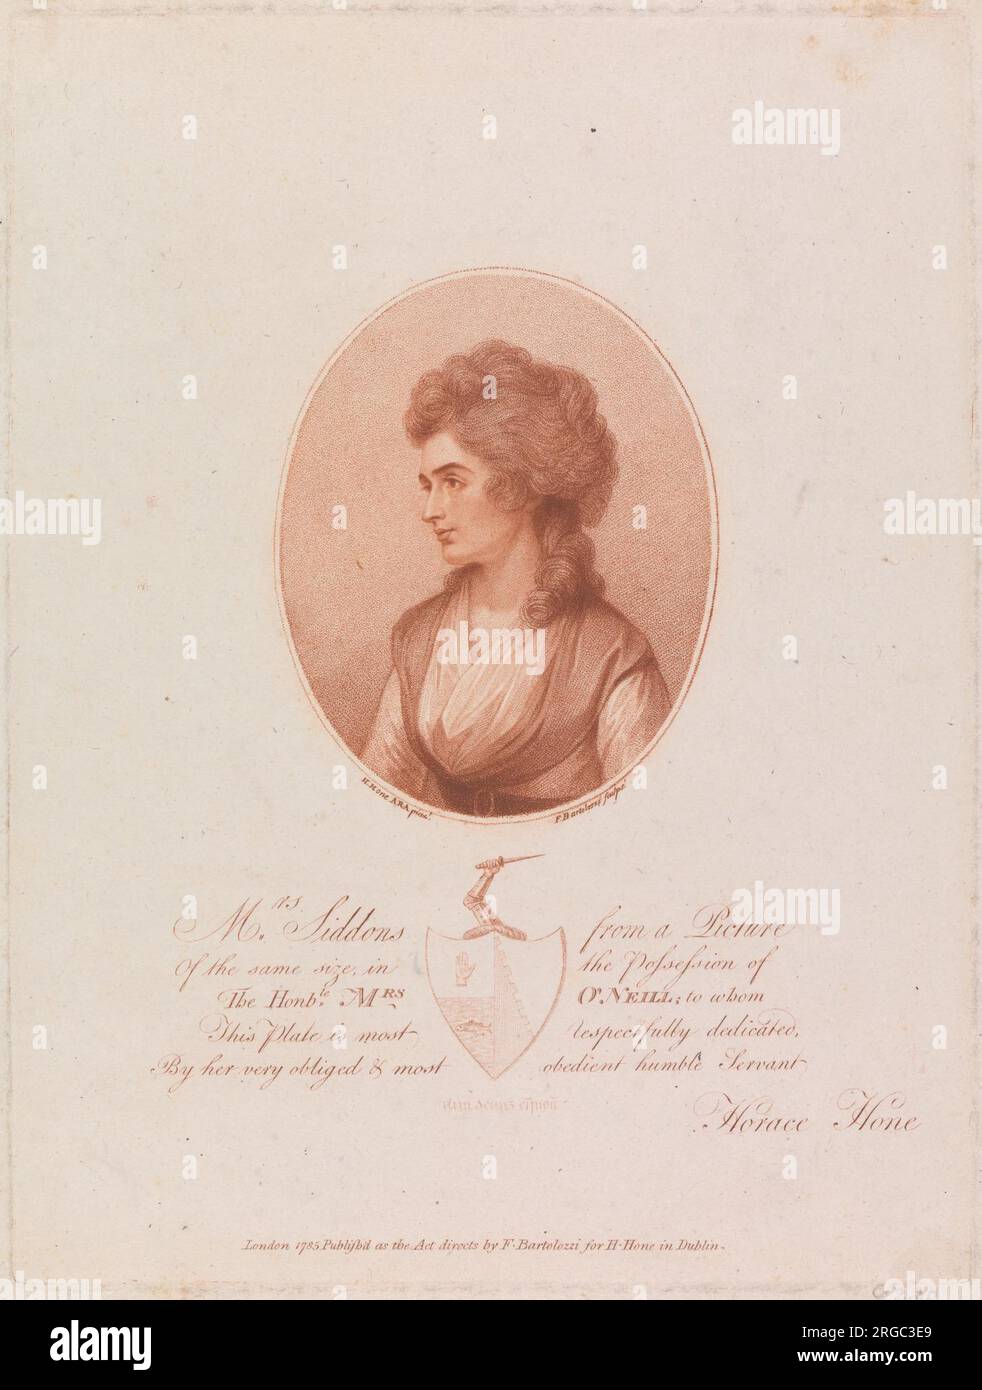 H. Hone A.R.A. pinxt.
F. Bartolozzi sculpt.
Mrs. Siddons from a Picture
Of the same size, in the Possession of
The Honble. Mrs O'Neill; to whom
This Plate is most respectfully dedicated,
By her very obliged & most obedient humble Servant
Horace Hone
London 1785 Publish'd as the Act directs by F. Bartolozzi for H. Hone in Dublin.
alamy
a
alamy
Image ID: 2RGC3E9
www.alamy.com